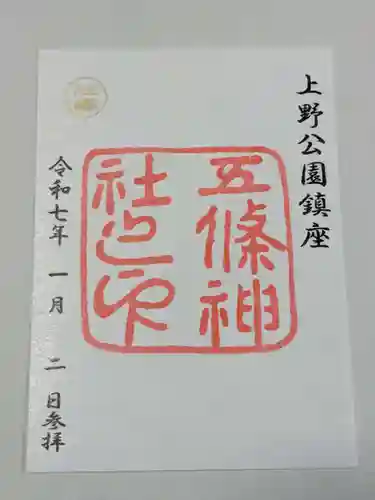 上野公園鎮座
五條神
社之印
令和七年 一月 二日参拝